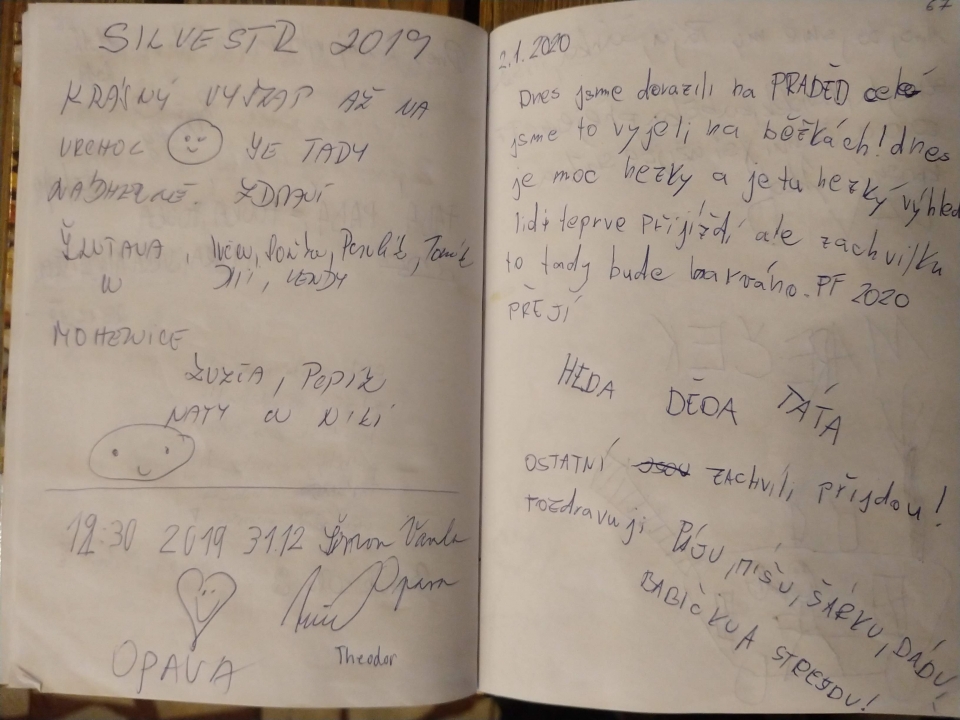 SILVESTR 2019
KRÁSNÝ VÝŠLAP AŽ NA
VRCHOL JE TADY
NÁDHERNĚ. ZDRAVÍ
MOHELNICE
ZUZIA, PEPIK
NATY a NIKI
2019 31.12 Šimon
Opava
OPAVA
Theodor
67
2.1.2020
Dnes jsme dorazili na PRADĚD celé
jsme to vyjeli na běžkách! dnes
je moc hezky a je tu hezký výhled
lidi teprve přijíždí ale zachvilku
to tady bude barváho. PF 2020
PŘEJÍ
HEDA DĚDA TÁŤA
OSTATNÍ JSOU ZACHVILI přijdou!
Pozdravuji PÁJU, MÍŠU, ŠÁRKU, DÁDU,
BABIČKU A STREJDU!